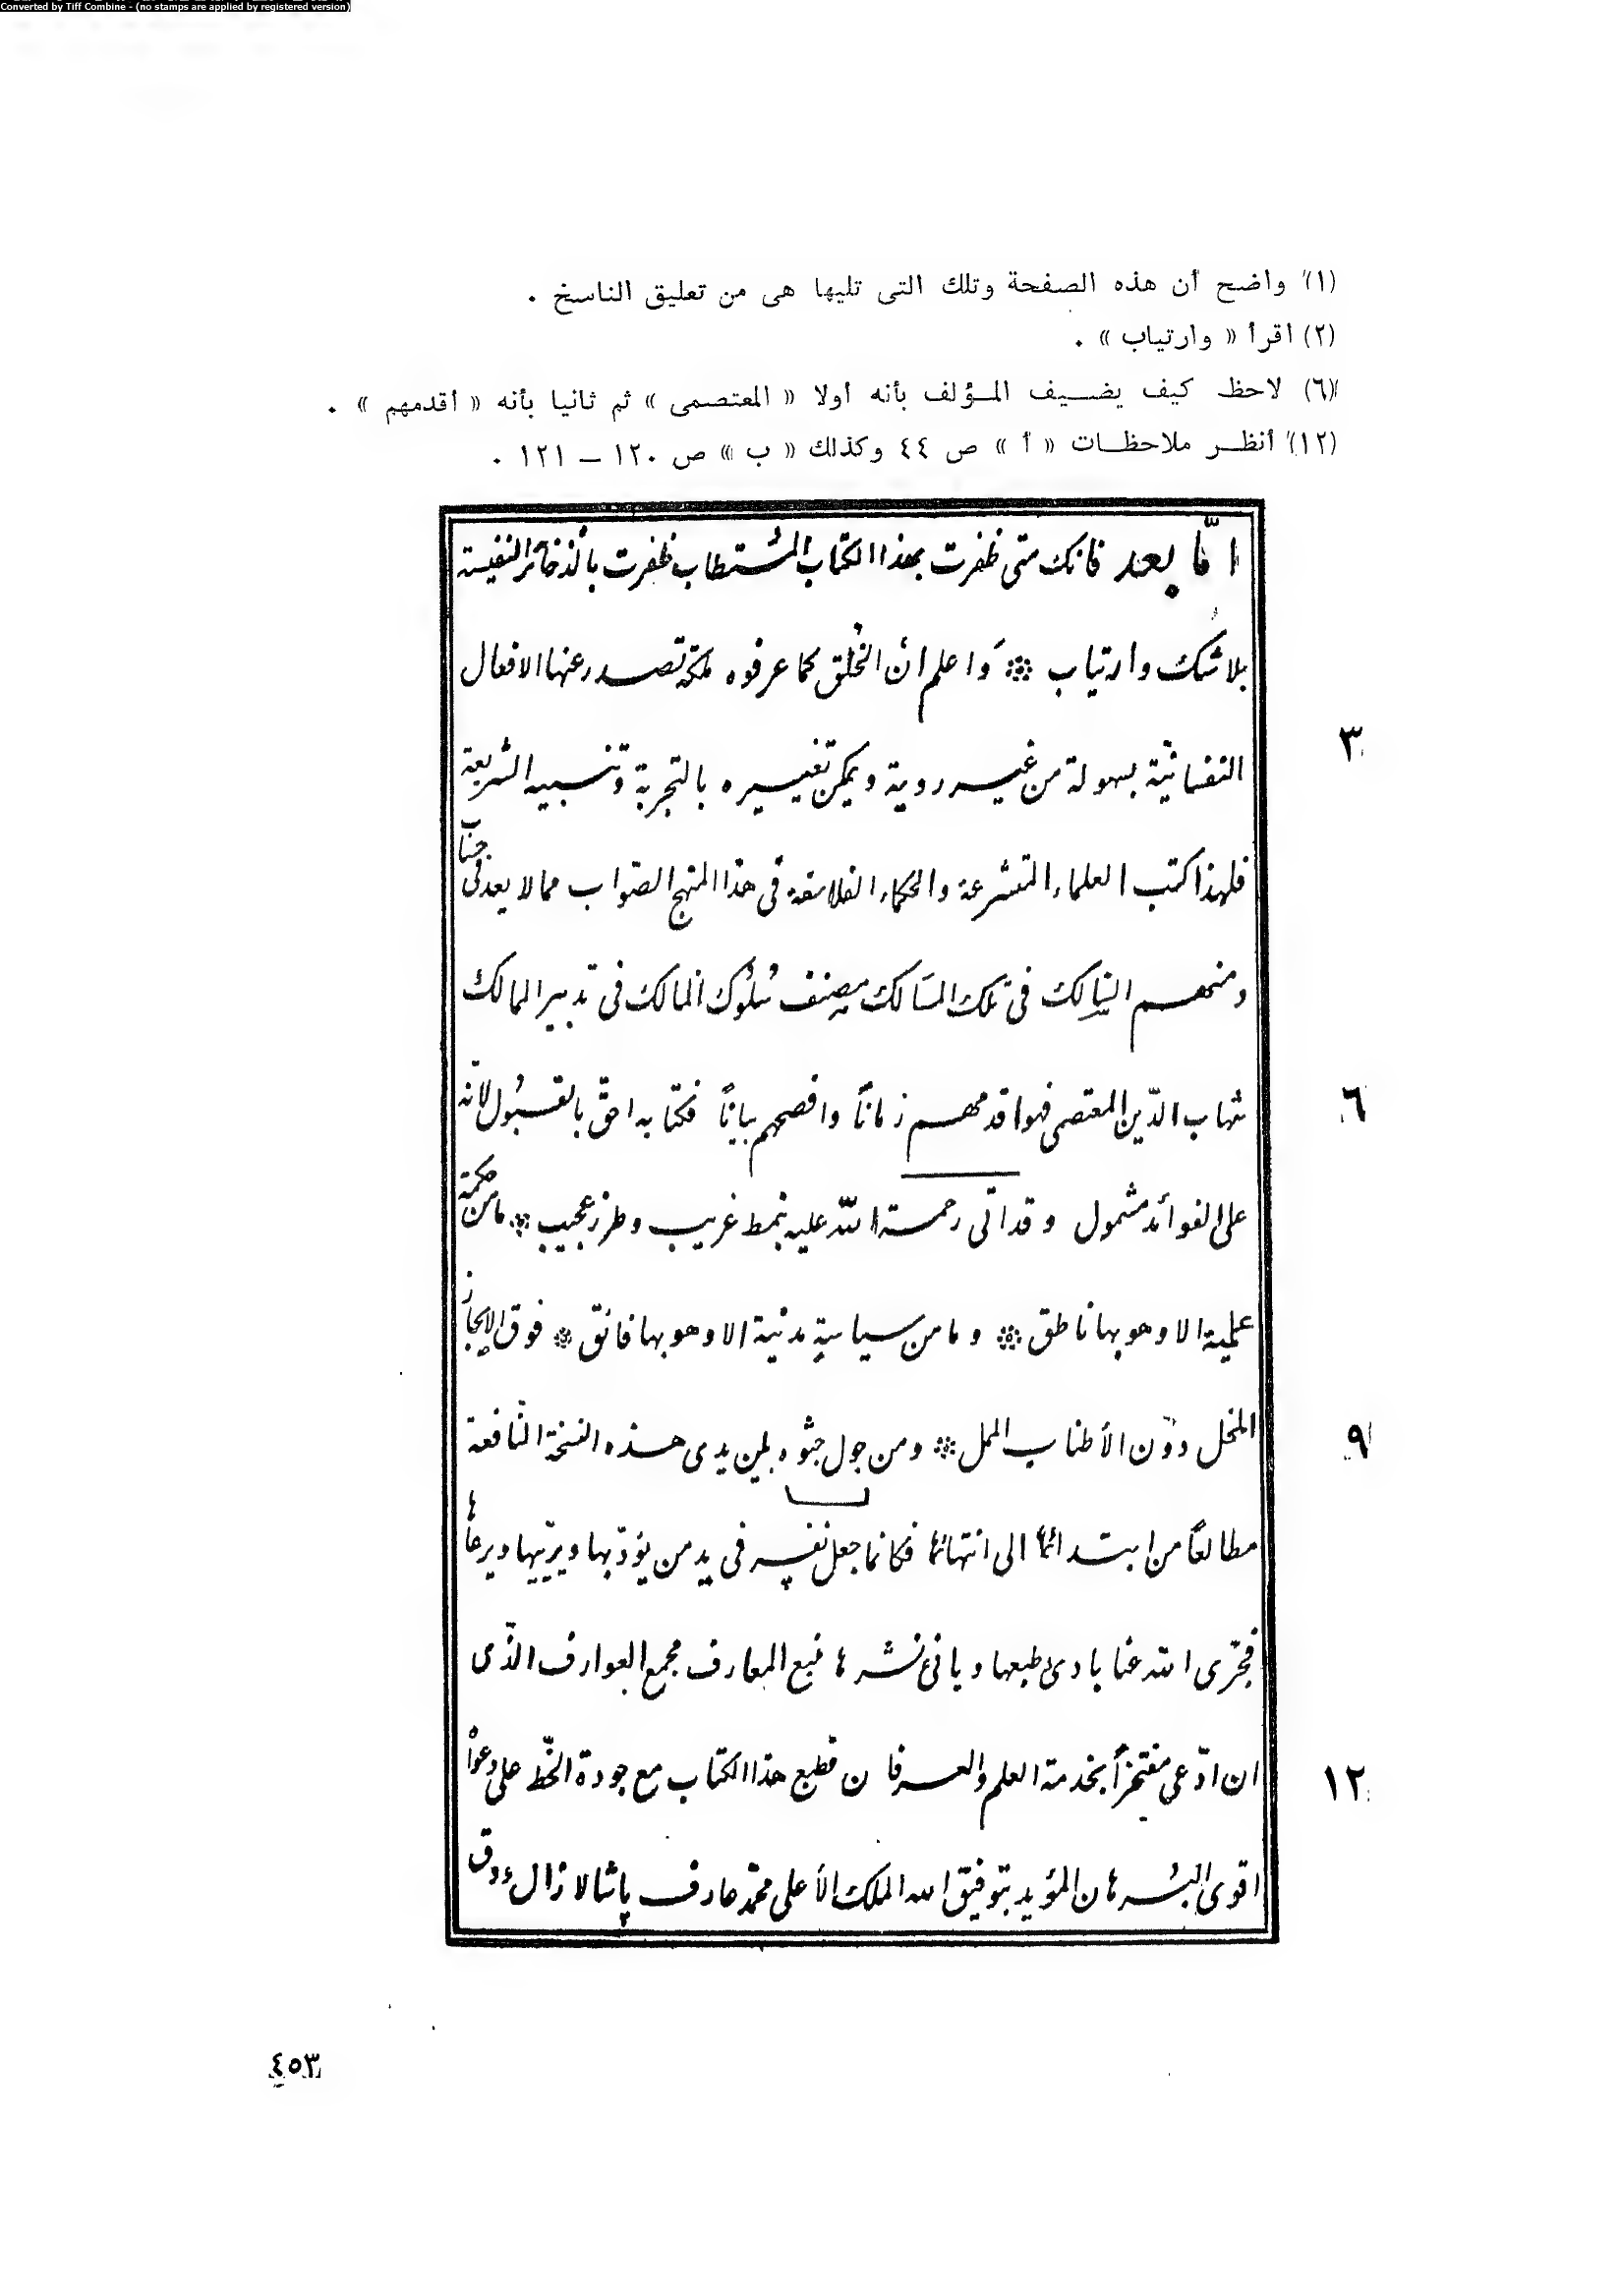 Converted by Tiff Combine - (no stamps are applied by registered version)
(١) واضح أن هذه الصفحة وتلك التى تليها هى من تعليق الناسخ .
(٢) اقرأ « وارتياب » .
(٦) لاحظ كيف يضـيف المـؤلف بأنه أولا « المعتصمى » ثم ثانيا بأنه « أقدمهم » .
(١٢) أنظـر ملاحظـات « أ » ص ٤٤ وكذلك « ب » ص ١٢٠ – ١٢١ .
امّا بعد فانك متى ظفرت بهذا الكتاب المستطاب ظفرت بالذخائر النفيسة
بلا شك وارتياب واعلم ان الخُلق كما عرفوه ملكة تصدر عنها الافعال
٣
النفسانية بسهولة من غير روية ويمكن تغييره بالتجربة وتنبيه الشريعة
فلهذا كتب العلماء المتشرعة والحكماء الفلاسفة فى هذا المنهج الصّواب مما لا يعد
ومنهم السالك فى تلك المسالك مصنف سُلوُك المالك فى تدبير الممالك
شهاب الدّين المعتصمى فهو اقدمهم زمانًا وافصحهم بيانًا فكتابه احقّ بالقبُول لانّه
٦
على الفوائد مشمول وقد اتى رحمة اللّه عليه بنمط غريب وطرز عجيب ما من حكمة
عملية الا وهو بها ناطق وما من سياسية مدنية الا وهو بها فائق فوق الايجاز
المخل دوُن الأطناب الممل ومن جول يدى هذه النسخة النّافعة
٩
مطالعًا من ابتدائها الى انتهائها فكانما جعل نفسه فى يد من يؤدّبها ويربّيها ويرعاها
فجزى اللّه عنا بادئ طبعها وبانئ نشرها منبع المعارف مجمع العوارف الذّى
ان ادّعى مفتخرًا بخدمة العلم والعرفان فطبع هذا الكتاب مع جودة الخّط على دعواه
١٢
اقوى البُرهان المؤيد بتوفيق اللّه الملك الأعلى محمّد عارف پاشا لا زال
٤٥٣